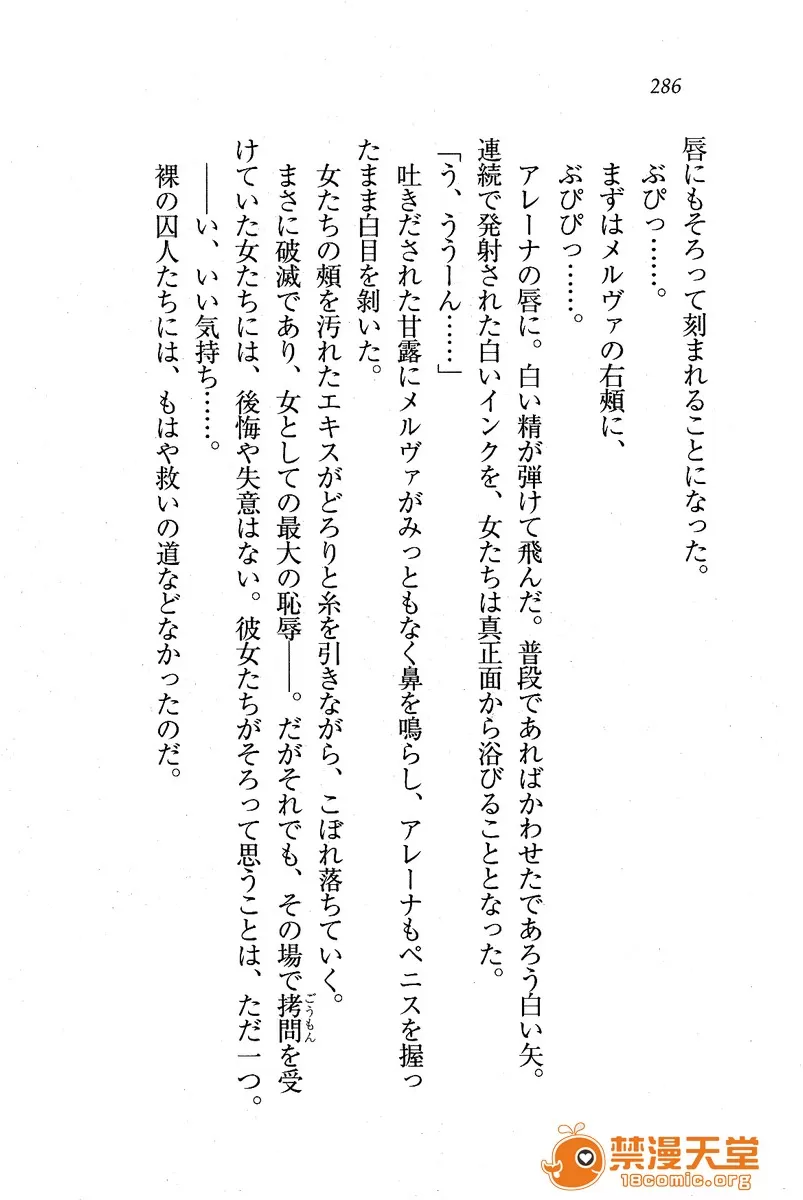 286
唇にもそろって刻まれることになった。
ぶぴっ……。
まずはメルヴァの右頰に、
ぶぴぴっ……。
アレーナの唇に。白い精が弾けて飛んだ。普段であればかわせたであろう白い矢。
連続で発射された白いインクを、女たちは真正面から浴びることとなった。
「う、ううーん……」
吐きだされた甘露にメルヴァがみっともなく鼻を鳴らし、アレーナもペニスを握っ
たまま白目を剝いた。
女たちの頰を汚れたエキスがどろりと糸を引きながら、こぼれ落ちていく。
まさに破滅であり、女としての最大の恥辱――。だがそれでも、その場で拷問を受
ごうもん
けていた女たちには、後悔や失意はない。彼女たちがそろって思うことは、ただ一つ。
――い、いい気持ち……。
裸の囚人たちには、もはや救いの道などなかったのだ。
禁漫天堂
18comic.org